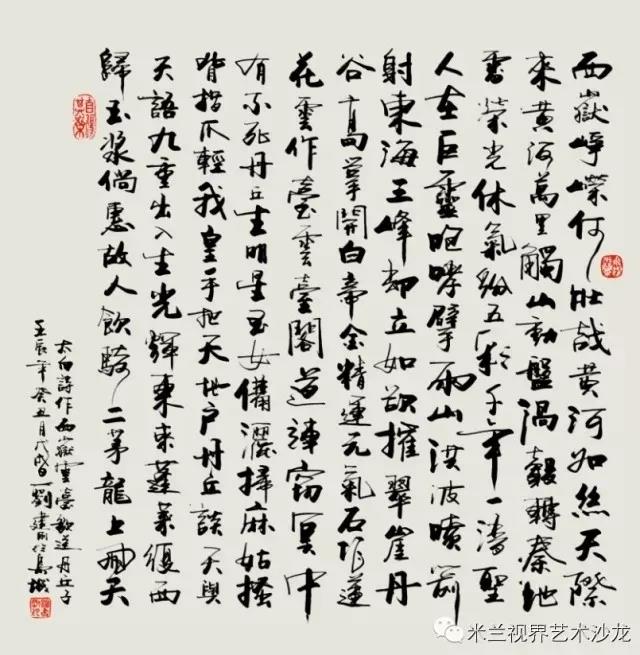 西嶽崢嶸何壯哉黄河如絲天際
來黄河萬里觸山動盤渦轂轉秦地
雷榮光休氣紛五彩千年一清聖
人在巨靈咆哮擘兩山洪波噴箭
射東海三峰却立如欲摧翠崖丹
谷高掌開白帝金精運元氣石作蓮
花雲作臺雲臺閣道連窈冥中
有不死丹丘生明星玉女備灑掃麻姑搔
背指爪輕我皇手把天地户丹丘談天與
天語九重出入生光輝東來蓬萊復西
歸玉漿倘惠故人飲騎二茅龍上飛天
太白詩作西嶽雲臺歌送丹丘子
壬辰年癸丑月戊戌日劉建
米兰视界艺术沙龙